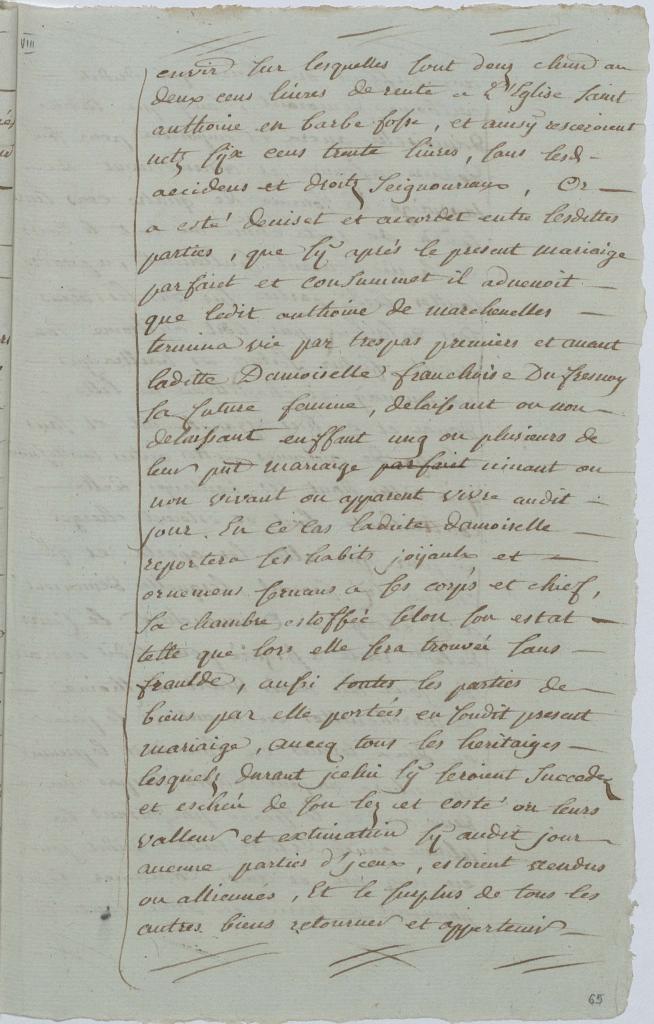 VIII
envir sur lesquelles sont deuz chun an
deux cens livres de rente a L'Eglise saint
anthoine en barbe fosse, et ainsy resceroient
netz six cens trente livres, sans lesd -
accidens et droitz Seignouriaux, Or —
a esté deviset et accordet entre lesdittes
parties, que sy aprés le present mariaige
parfaict et consummet il advenoit —
que ledit anthoine de marchenelles —
termina vie par trespas premiers et avant
laditte Damoiselle franchoise Du fresnoy
sa future femme, delaissant ou non —
delaissant enffant ung ou plusieurs de
leur pnt mariaige parfaict vivant ou
non vivant ou apparent vivre audit —
jour. En ce cas ladicte damoiselle —
reportera ses habits joijaulx et —
ornemens servans a ses corps et chief,
sa chambre estoffée selon son estat —
telle que lors elle sera trouvée sans —
fraulde, aussi toutes les parties de —
biens par elle portées en soudit present
mariaige, avecq tous les heritaiges —
lesquelz durant icelui sy seroient succedez
et escheu de son lez et costé ou leurs
valleur et extimation sy audit jour —
aucune parties d'iceux, estoient vendus
ou alliennés, Et le surplus de tous les
autres biens retourner et appertenir —
65